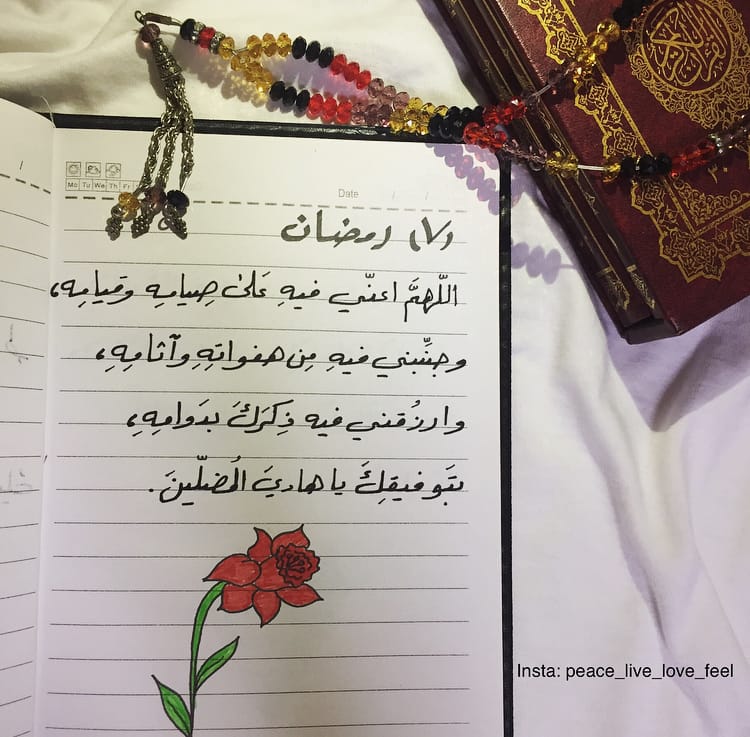 Mo Tu We Th Fr
Date / /
(٧) رمضان
اللّهمَّ اعنّي فيهِ عَلىٰ صِيامِهِ وقيامِهِ،
وجنِّبني فيهِ مِن هفواتِهِ وآثامِهِ،
وارزُقني فيه ذِكرَكَ بدَوامِهِ،
بتَوفيقِكَ يا هاديَ المُضلّينَ.
القرآن الكريم
Insta: peace_live_love_feel